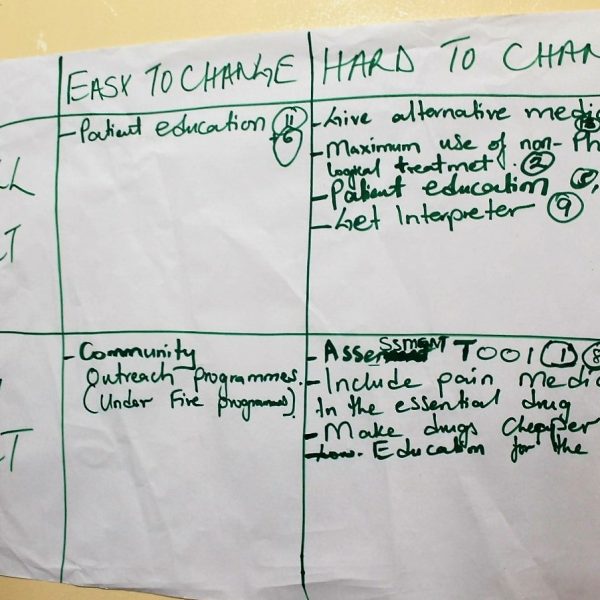 EASY TO CHANGE
HARD TO CHAN
- Patient education 11
+6
- Give alternative medic
- Maximum use of non- Ph
logical treatmet. 2
- Patient education
- Get Interpreter 9
LL
LT
- Community
Outreach programmes.
(Under Five programmes).
- Assessment TOOl 1 8
- Include pain Medic
In the essential drug
- Make drugs cheaper
Education for the
LT